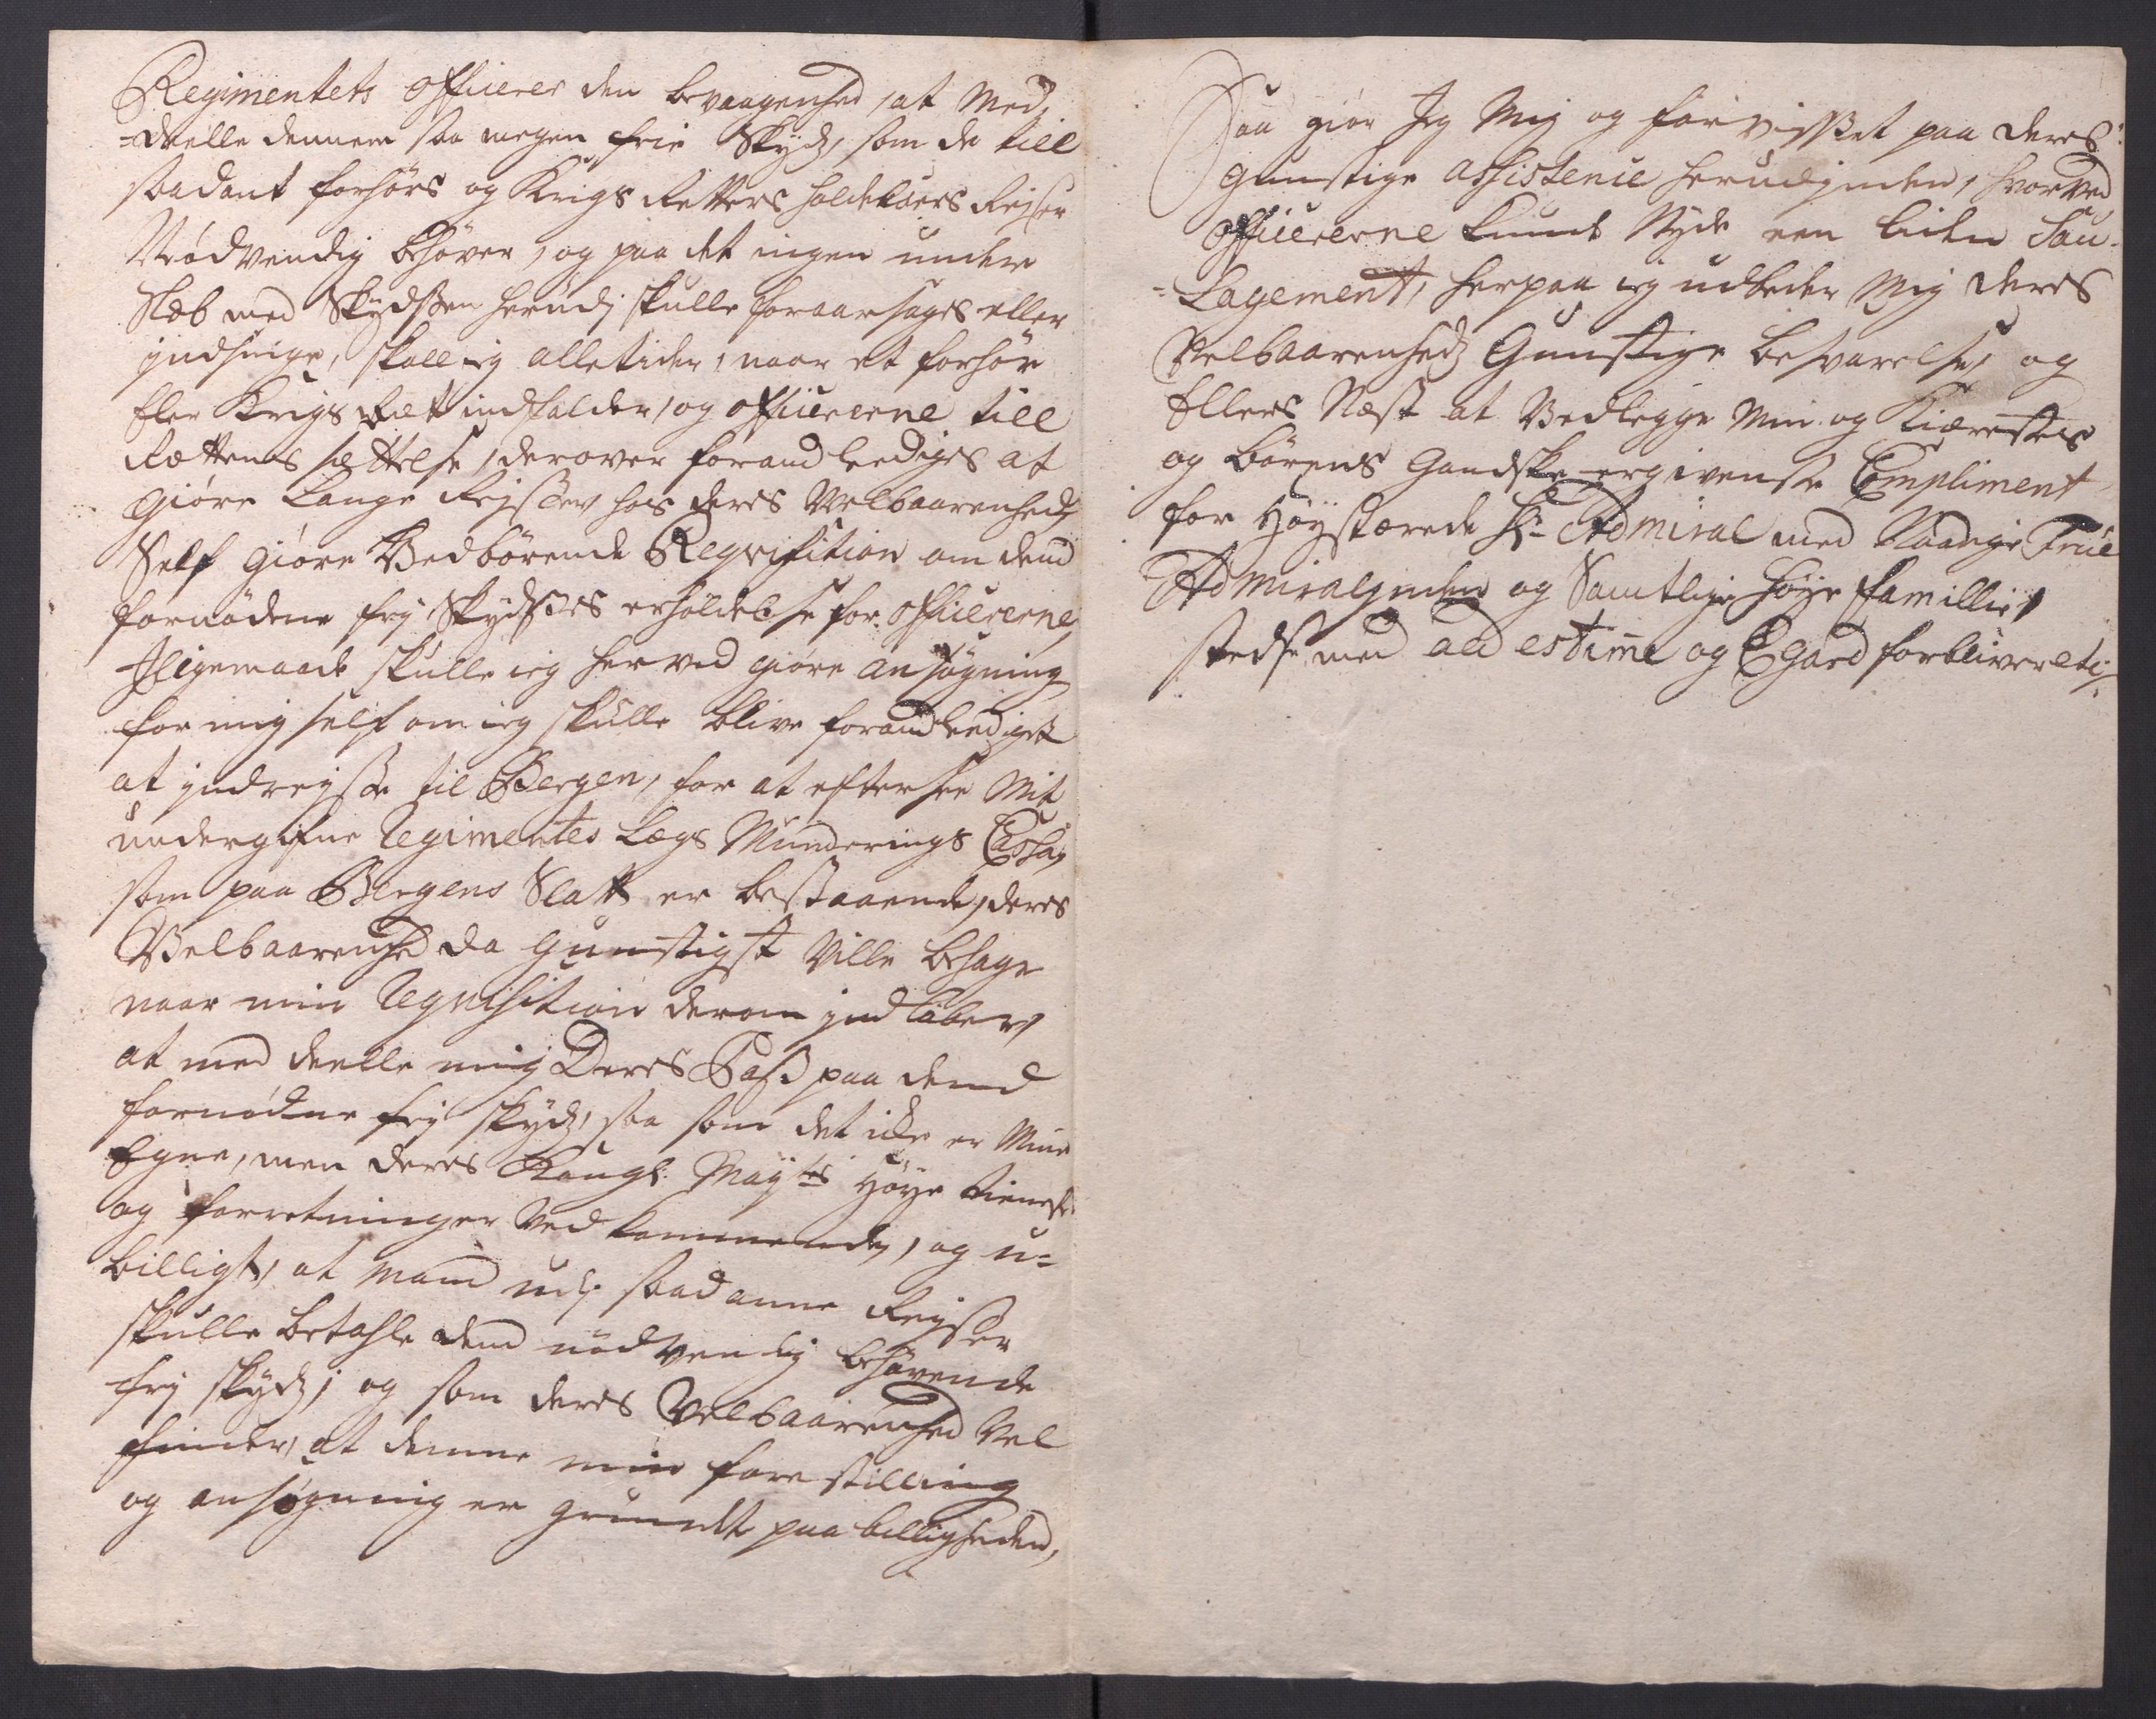 Regimentets officerer den bevaagenhed, at Med-
-deelle dennem saa megen frie Skydz, som de till
saadant forhørs og Krigs Retters holdelsers Rejser
Nødvendig behøver, og paa det ingen under
Slæb med Skydssen herudj skulle foraarsages eller
jndsnige, skall ieg alletider, naar et forhør
Eller Krigs Ret indfalder, og officererne till
Rættens sættelse, derover foraudleediges at
giøre Lange Rejsser hos deres Velbaarenhedz
Self giøre Vedbørende Reqvisition om dend
fornødene frj Skydses erholdelse for officererne,
Jligemaade skulle ieg herved giøre ansøgning
for mig self om ieg skulle blive foraudleediget
at jndrejsse til Bergen, for at eftersee Mit
undergifne Regimentes Lægs Munderings Cassa,
som paa Bergens Slatt er bestaaende, deres
Velbaarenhed da gunstigst Ville behage
naar min Reqvisition derom jndløber,
at med deelle mig Deres Pass paa dend
fornødne frj skydz, saa som det icke er Mine
Egne, men deres Kongl: Mayts Høye tieneste
og forretninger Vedkommende, og u-
billigt, at Mand udj saadanne Rejsser
skulle betahle dend nødvendig behøvende
frj skydz; og som deres Velbaarenhed Vel
finder, at denne min forestilling
og ansøgning er grundet paa billigheden,
Saa giør Jeg Mig og forvisset paa deres
gunstige assistence herudjnden, hvorved
officererne kunde Nyde een liden Sou-
-Lagement, herpaa ieg udbeder Mig deres
Velbaarenhedz Gunstige besvarelse, og
Ellers Næst at Vedlegge Min og Kiærestes
og børens Gandske ergivenste Compliment
for Høystærede Hr Admiral med Naadige Frue
Admiralinden og Samtlige høye famillie,
stedse med all estime og Egard forbliver etc: